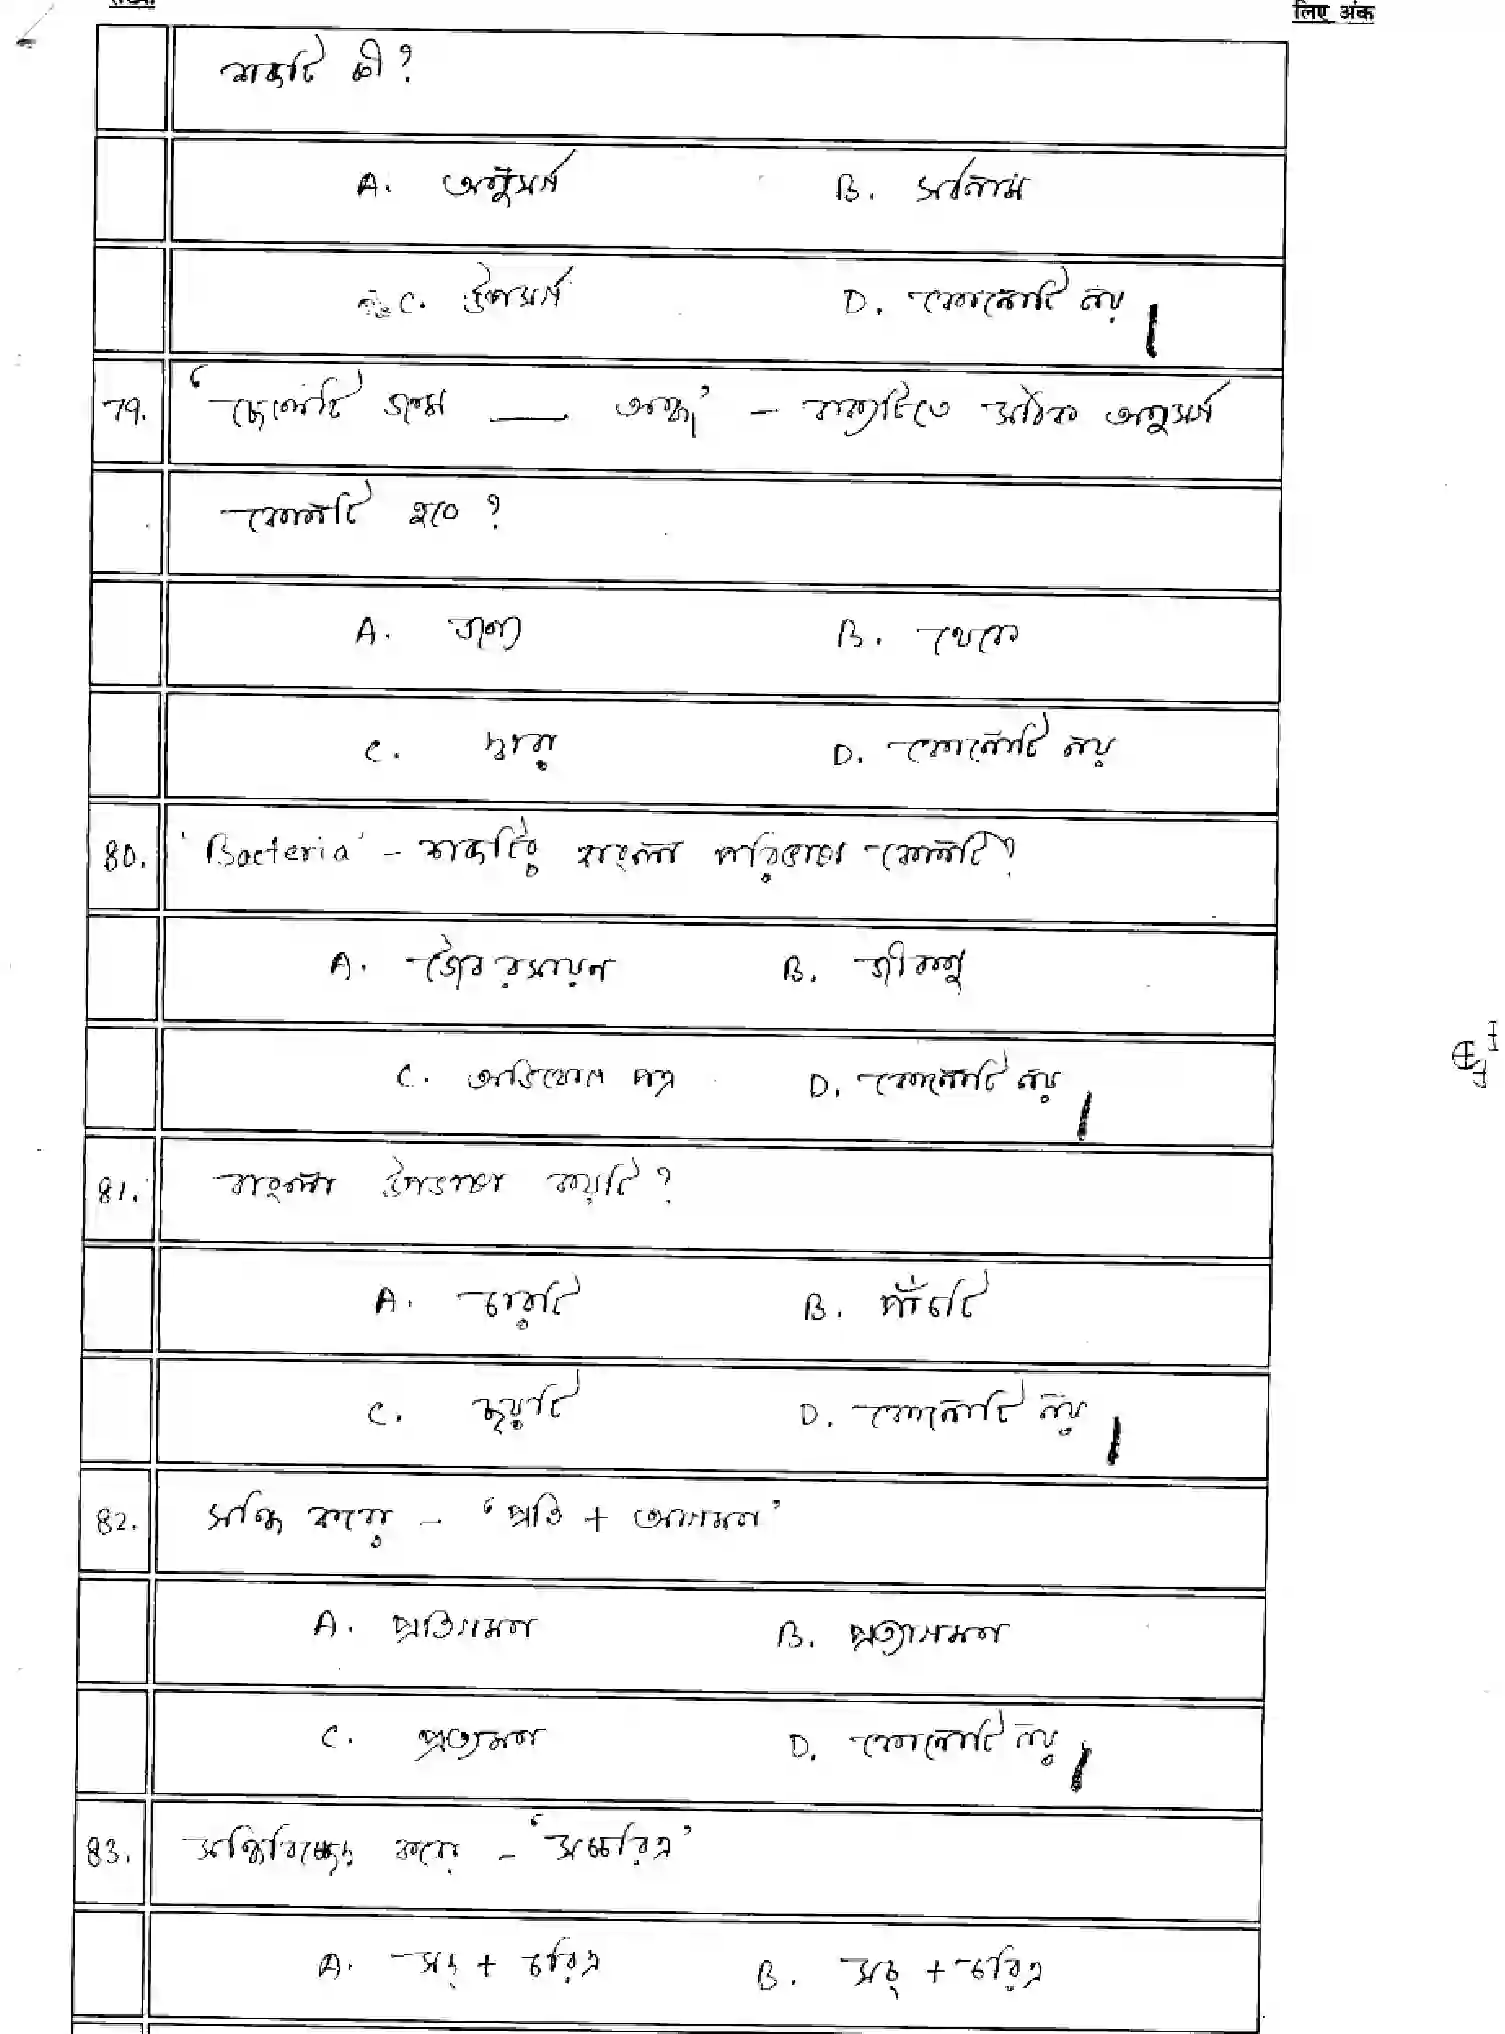 संख्या
लिए अंक
শব্দটি কী?
A. অনুসর্গ B. সর্বনাম
C. উপসর্গ D. কোনোটি নয়
79. 'ছেলেটি জন্ম ___ অন্ধ' - বাক্যটিতে সঠিক অনুসর্গ
কোনটি হবে ?
A. জন্যে B. থেকে
C. দ্বারা D. কোনোটি নয়
80. 'Bacteria' - শব্দটির বাংলা পরিভাষা কোনটি?
A. জৈব রসায়ন B. জীবাণু
C. অভিযোগ পত্র D. কোনোটি নয়
81. বাংলা উপভাষা কয়টি ?
A. চারটি B. পাঁচটি
C. ছয়টি D. কোনোটি নয়
82. সন্ধি করো - 'প্রতি + আগমন'
A. প্রতিগমন B. প্রত্যাগমন
C. প্রত্যমন D. কোনোটি নয়
83. সন্ধিবিচ্ছেদ করো - 'সচ্চরিত্র'
A. সৎ + চরিত্র B. সচ্ + চরিত্র